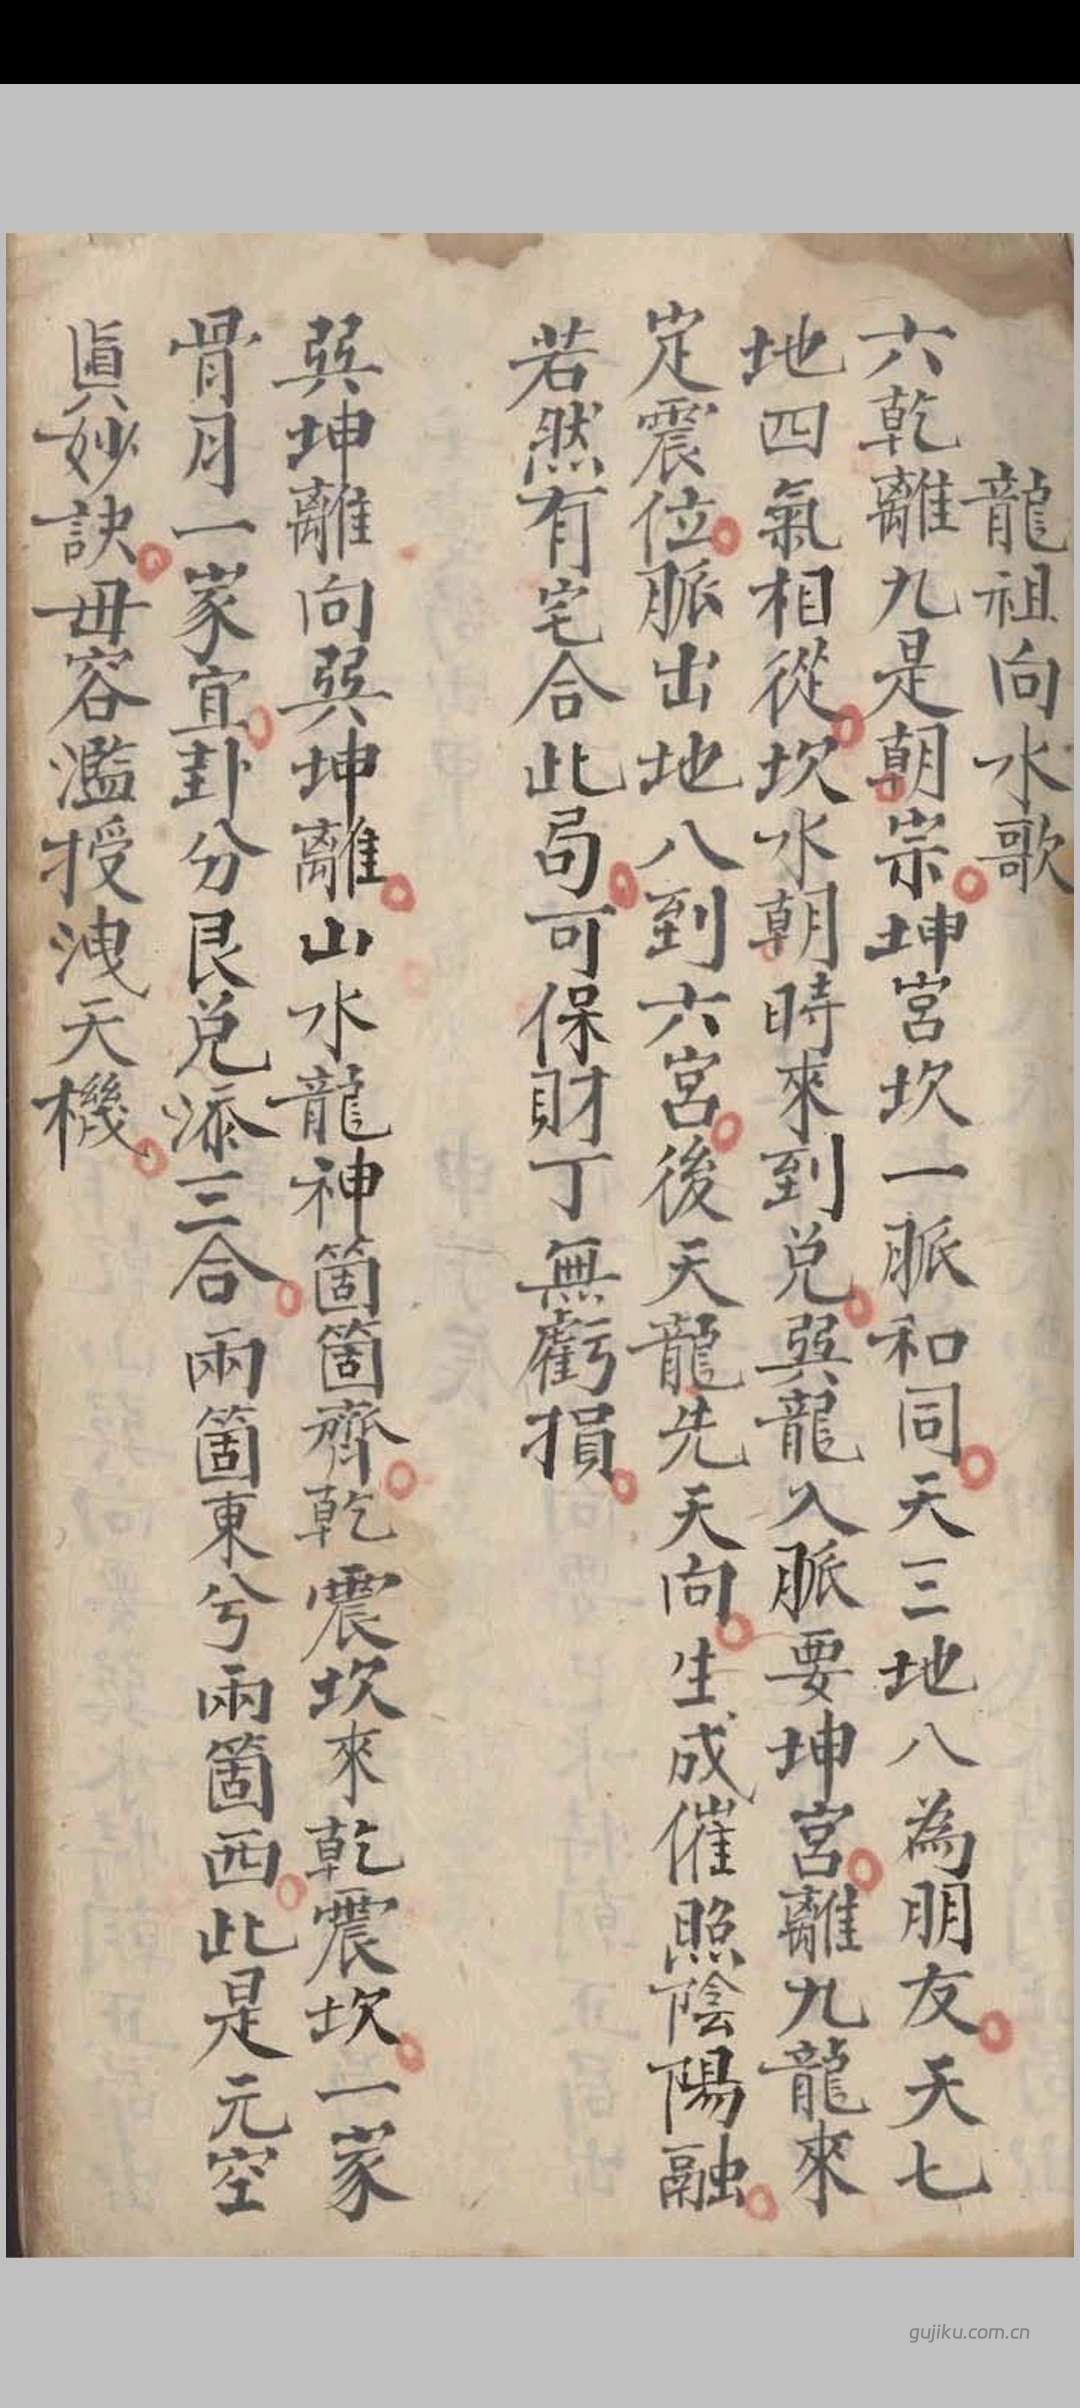 龍祖向水歌
六乾離九是朝宗坤宮坎一脈和同天三地八為朋友天七
地四氣相從坎水朝時來到兌巽龍入脈要坤宮離九龍來
定震位脈出地八到六宮後天龍先天向生成催照陰陽融
若然有宅合此局可保財丁無虧損
巽坤離向巽坤離山水龍神箇箇齊乾震坎來乾震坎一家
骨月一家宜卦分艮兌添三合兩箇東兮兩箇西此是元空
眞妙訣毋容濫授洩天機
gujiku.com.cn